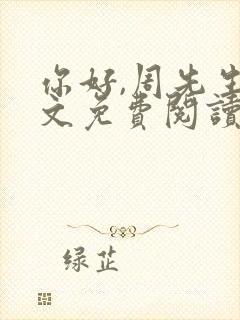 你好,周先生
文免费閱讀
绿芷